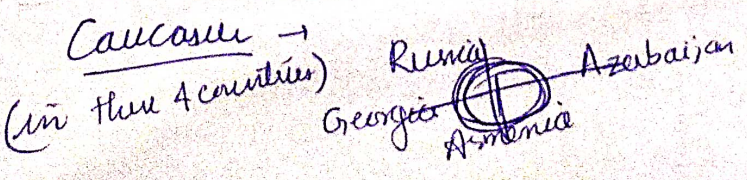 Caucasus →
(in these 4 countries)
Russia
Azerbaijan
Georgia
Armenia